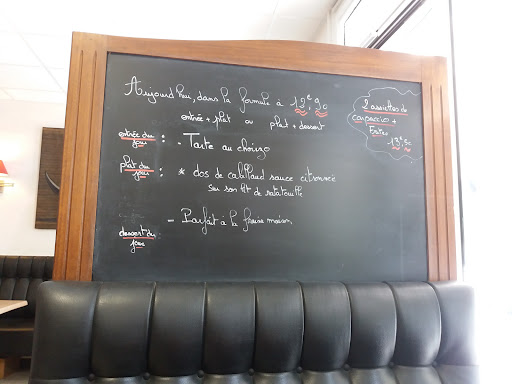 Aujourd'hui, dans la formule à 12€,90
entrée + plat ou plat + dessert
entrée du jour : - Tarte au chorizo
plat du jour : * dos de cabillaud sauce citronnée
sur son lit de ratatouille
dessert du jour - Parfait à la fraise maison.
2 assiettes de
carpaccio +
Frites